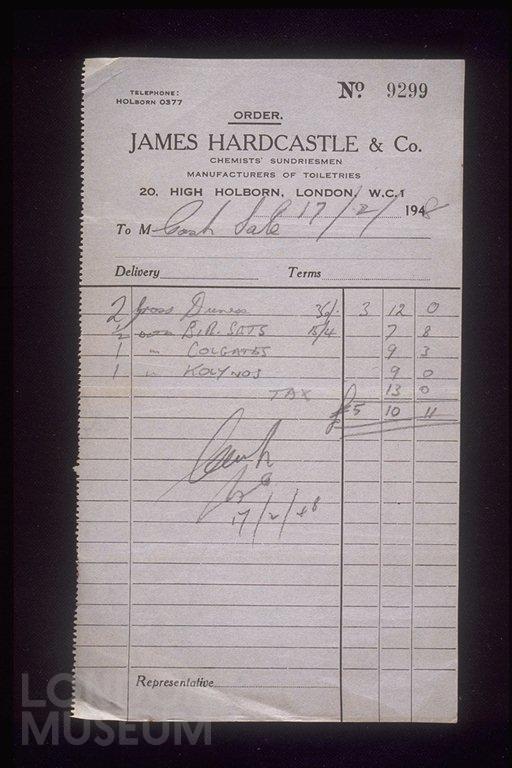 TELEPHONE:
HOLBORN 0377
No 9299
ORDER.
JAMES HARDCASTLE & Co.
CHEMISTS' SUNDRIESMEN
MANUFACTURERS OF TOILETRIES
20, HIGH HOLBORN, LONDON, W.C.1
17/2/ 1948
To M Cash Sale
Delivery Terms
2 gross 36/- 3 12 0
1/2 doz BIRSATS 15/4 7 8
1 " COLGATES 9 3
1 " KOLYNOS 9 0
TAX 13 0
£5 10 11
Cash
17/2/48
Representative
LONDON
MUSEUM